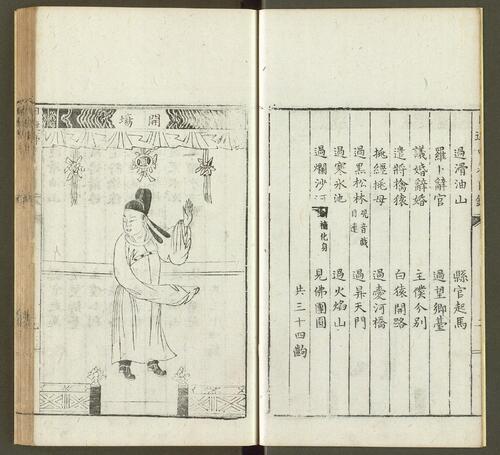 過滑油山 縣官起馬
羅卜辭官 過望鄉臺
議婚辭婚 主僕分別
遣將擒猿 白猿開路
挑經挑母 過河橋
過黑松林 觀音戲目連 過昇天門
過寒氷池 過火焰山
過爛沙河 化身 見佛團圓
共三十四齣
開塲